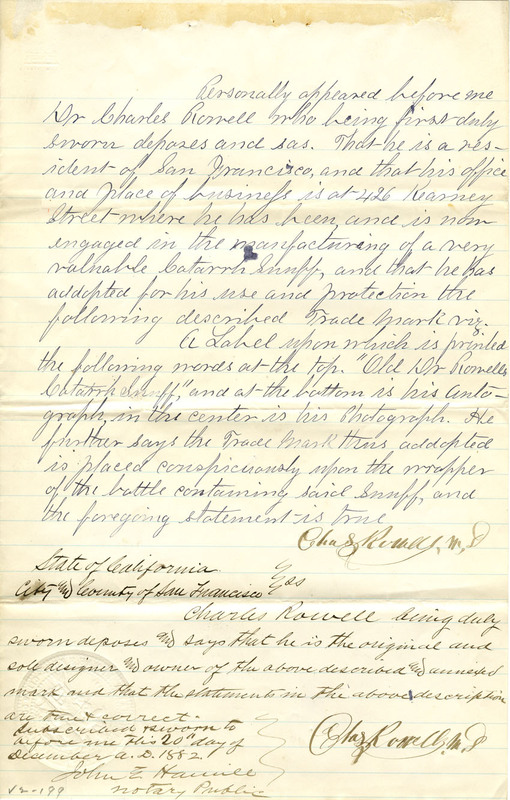 Personally appeared before me
Dr Charles Rowell who being first duly
sworn deposes and sas. That he is a res-
ident of San Francisco, and that his office
and place of business is at 426 Kearney
Street where he has been, and is now
engaged in the manufacturing of a very
valuable Catarrh Snuff, and that he has
addopted for his use and protection the
following described Trade Mark viz.
A Label upon which is printed
the following words at the top. "Old Dr Rowell's
Catarrh Snuff," and at the bottom is his Auto-
graph, in the center is his Photograph. He
further says the Trade Mark thus addopted
is placed conspiciously upon the wrapper
of the bottle containing said Snuff, and
the foregoing statement is true
Chas Rowell, M.D
State of California
City and County of San Francisco } ss
Charles Rowell being duly
sworn deposes and says that he is the original and
sole designer and owner of the above described and annexed
mark and that the statements in the above description
are true & correct.
Subscribed & sworn to
before me this 20th day of
December A.D. 1882.
Chas Rowell, M.D
John E
Notary Public